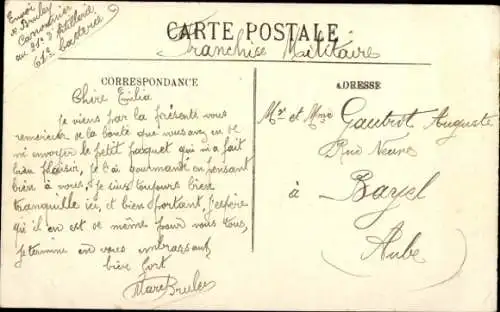 Envoi
de Bruley
Canonnier
au 21e d'Artillerie
61e batterie
CARTE POSTALE
Franchise Militaire
CORRESPONDANCE
Chère Emilia
Je viens par la présente vous
remercier de la bonté que vous avez eu de
m'envoyer le petit paquet qui m'a fait
bien plaisir, je l'ai gourmandé en pensant
bien à vous. Je suis toujours bien
tranquille ici, et bien portant, j'espère
qu'il en est de même pour vous tous,
Je termine en vous embrassant
bien fort
Marc Bruley
ADRESSE
Mr et Mme Gautrot Auguste
Rue Neuve
à Bayel
(Aube)